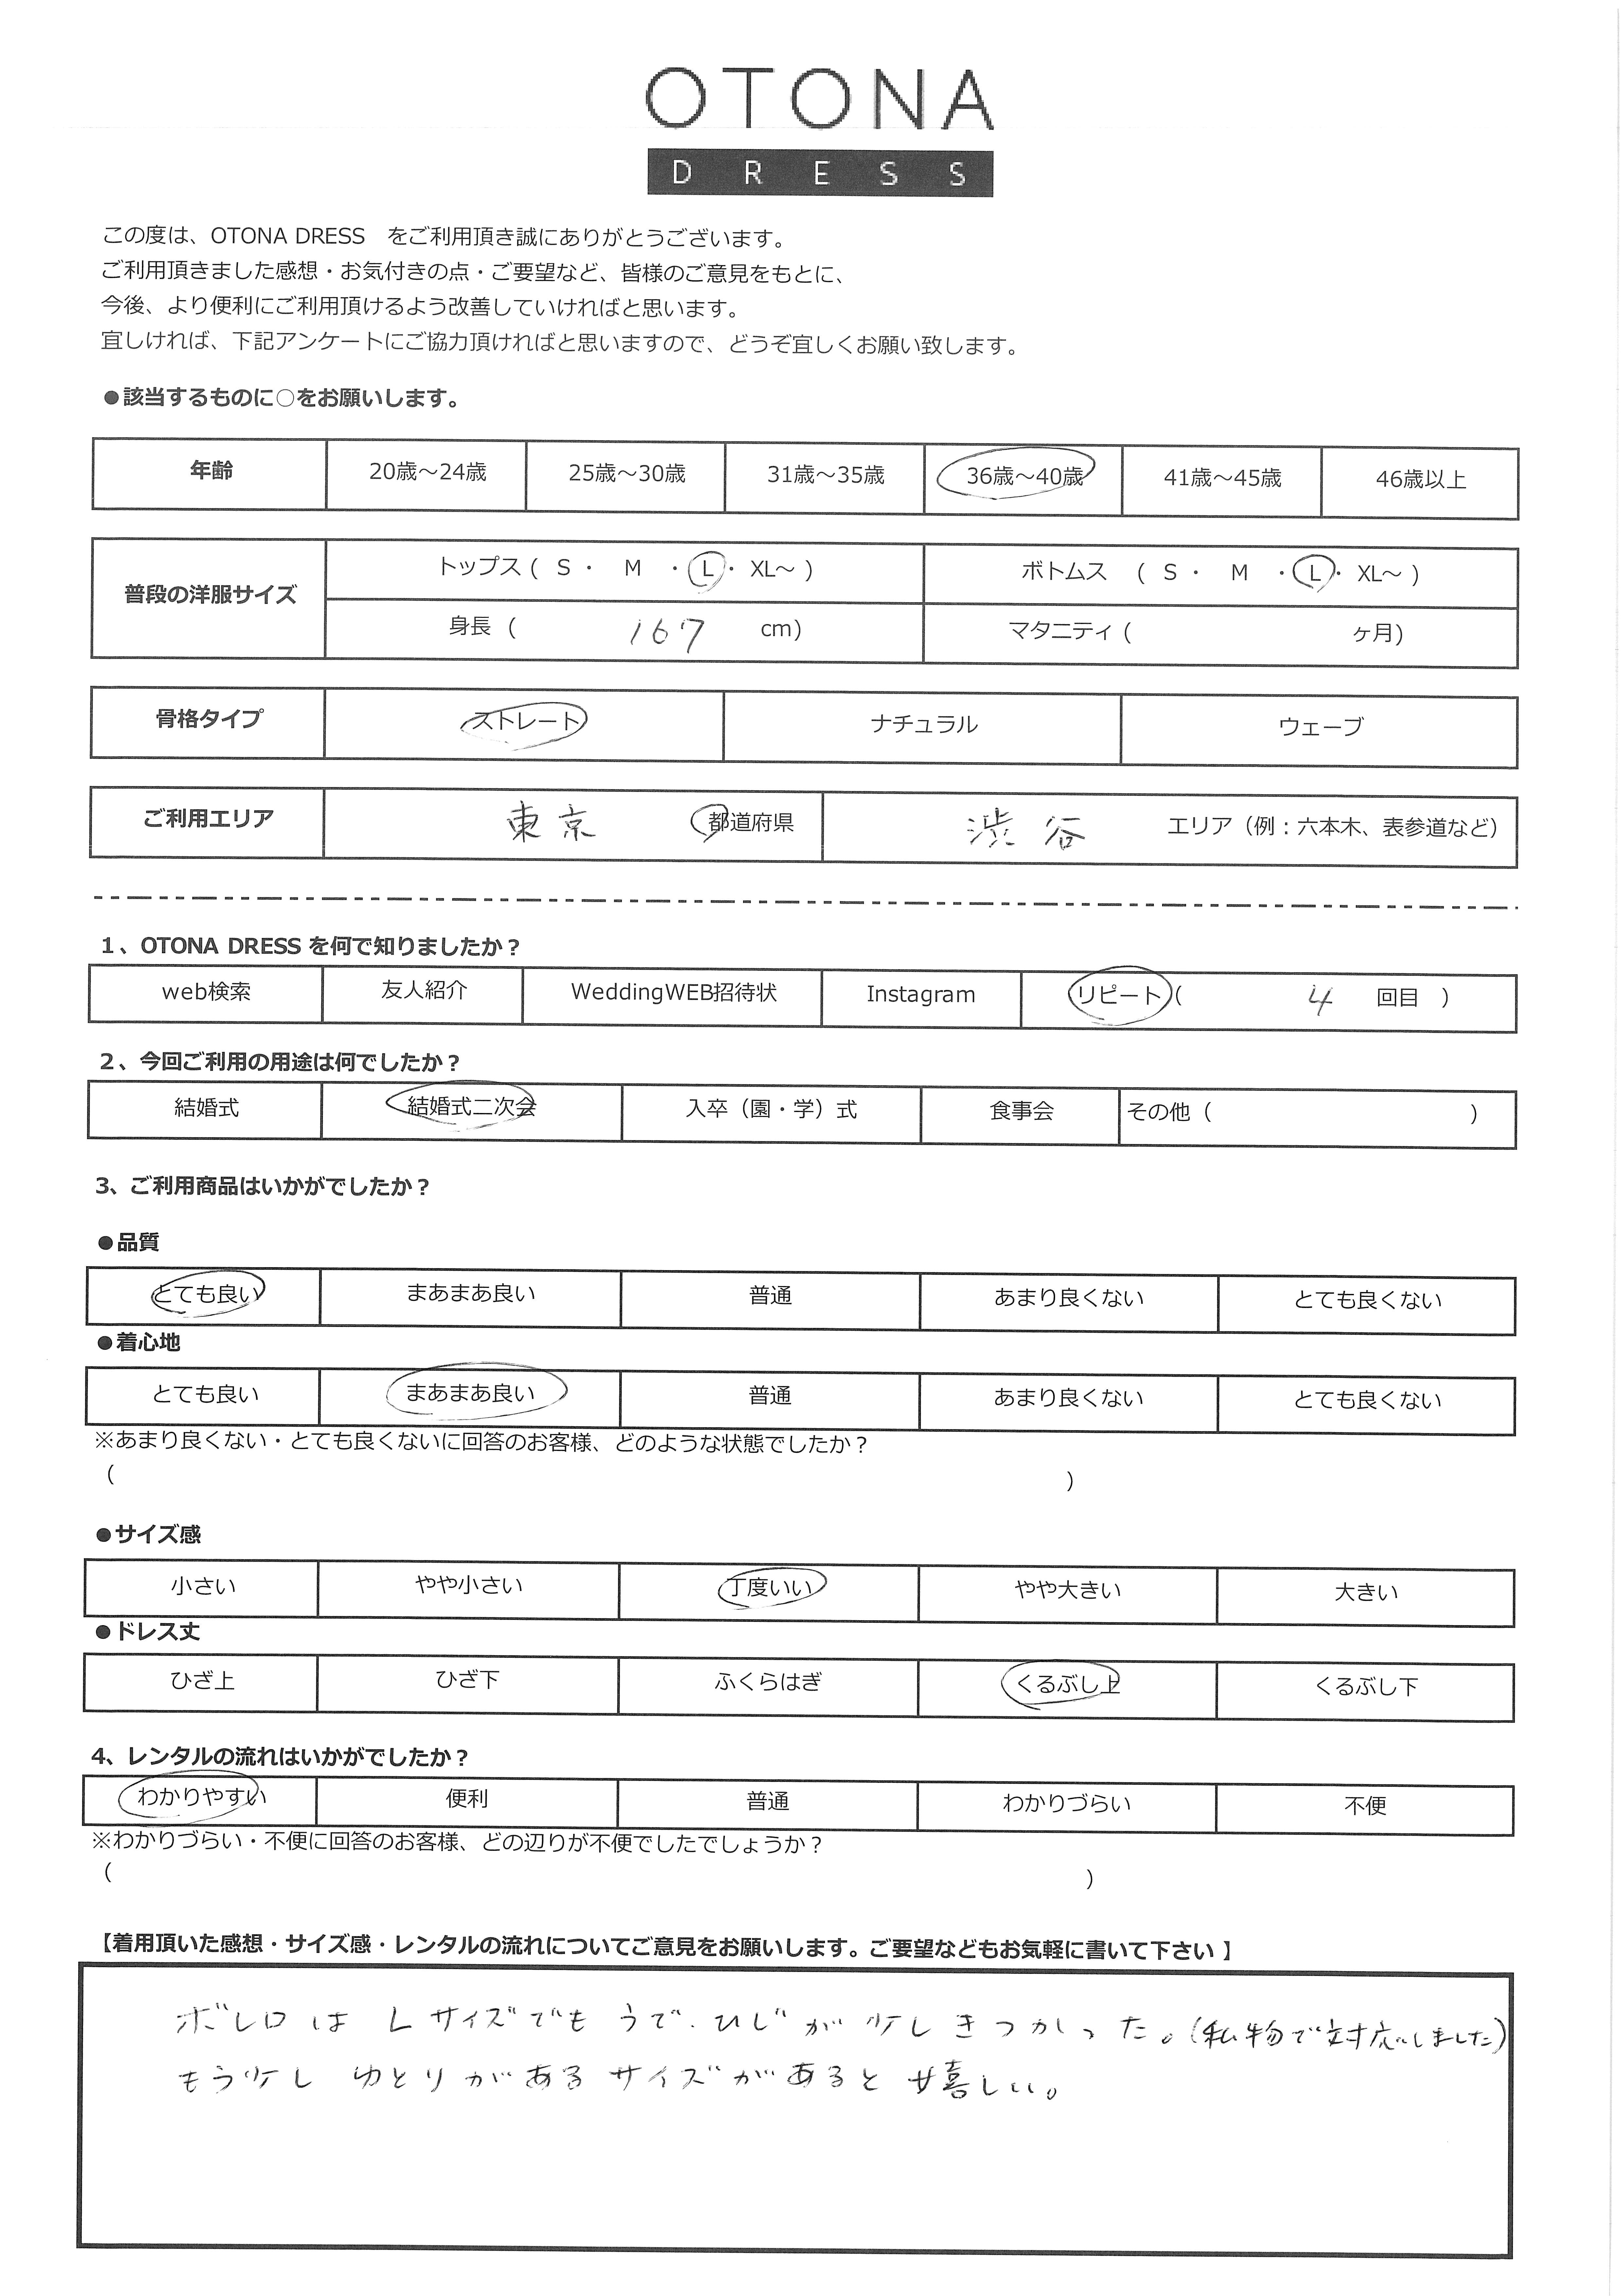 OTONA
DRESS
この度は、OTONA DRESS　をご利用頂き誠にありがとうございます。
ご利用頂きました感想・お気付きの点・ご要望など、皆様のご意見をもとに、
今後、より便利にご利用頂けるよう改善していければと思います。
宜しければ、下記アンケートにご協力頂ければと思いますので、どうぞ宜しくお願い致します。
●該当するものに○をお願いします。
年齢 20歳～24歳 25歳～30歳 31歳～35歳 36歳～40歳 41歳～45歳 46歳以上
普段の洋服サイズ トップス ( S ・ M ・ L ・ XL～ ) ボトムス ( S ・ M ・ L ・ XL～ )
身長 ( 167 cm) マタニティ ( ヶ月)
骨格タイプ ストレート ナチュラル ウェーブ
ご利用エリア 東京 都道府県 渋谷 エリア（例：六本木、表参道など）
1、OTONA DRESS を何で知りましたか？
web検索 友人紹介 WeddingWEB招待状 Instagram リピート ( 4 回目 )
2、今回ご利用の用途は何でしたか？
結婚式 結婚式二次会 入卒（園・学）式 食事会 その他 ( )
3、ご利用商品はいかがでしたか？
●品質
とても良い まあまあ良い 普通 あまり良くない とても良くない
●着心地
とても良い まあまあ良い 普通 あまり良くない とても良くない
※あまり良くない・とても良くないに回答のお客様、どのような状態でしたか？
( )
●サイズ感
小さい やや小さい 丁度いい やや大きい 大きい
●ドレス丈
ひざ上 ひざ下 ふくらはぎ くるぶし上 くるぶし下
4、レンタルの流れはいかがでしたか？
わかりやすい 便利 普通 わかりづらい 不便
※わかりづらい・不便に回答のお客様、どの辺りが不便でしたでしょうか？
( )
【着用頂いた感想・サイズ感・レンタルの流れについてご意見をお願いします。ご要望などもお気軽に書いて下さい 】
ボレロは Lサイズでも うで・ひじが 少しきつかった。(私物で対応しました)
もう少し ゆとりがあるサイズがあると嬉しい。